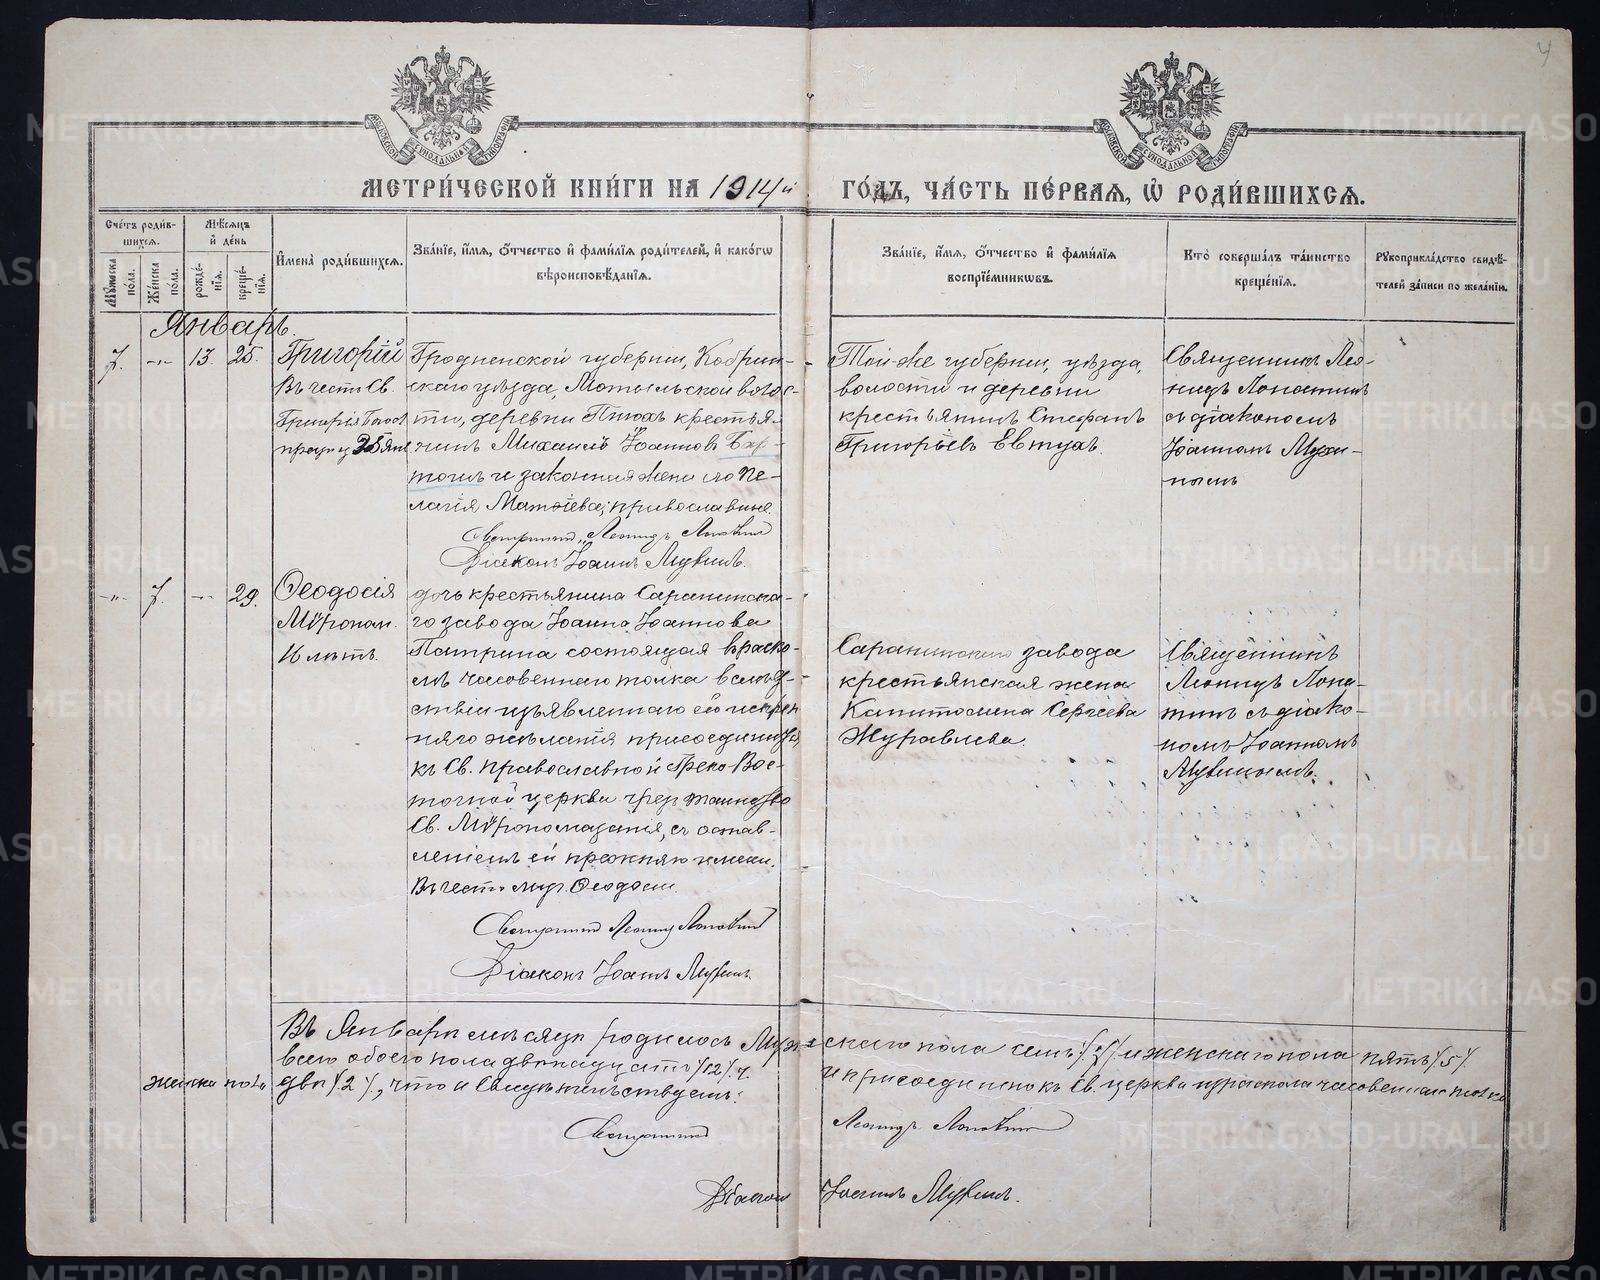 4
МОСКОВСКОЙ СѴНОДАЛЬНОЙ ТИПОГРАФІИ
МОСКОВСКОЙ СѴНОДАЛЬНОЙ ТИПОГРАФІИ
МЕТРИ́ЧЕСКОЙ КНИ́ГИ НА 1914й ГО́ДЪ, ЧА́СТЬ ПЕ́РВАЯ, Ѡ҆ РОДИ́ВШИХСЯ.
Сче́тъ роди́в-
шихся.
Мѣ́сяцъ
и҆ де́нь
Му́жеска
по́ла.
Же́нска
по́ла.
рожде́-
нїя.
креще́-
нїя.
И҆мена̀ роди́вшихся.
Зва́нїе, и҆́мя, ѻ҆́тчество и҆ фами́лїя роди́телей, и҆ како́гѡ
вѣроисповѣ́данїя.
Зва́нїе, и҆́мя, ѻ҆́тчество и҆ фами́лїя
воспрїе́мникѡвъ.
Кто̀ соверша́лъ та́инство
креще́нїя.
Рꙋкоприкла́дство свидѣ́-
телей за́писи по жела́нїю.
Январь.
7. -"- 13. 25. Григорій
Въ честь Св.
Григорія Богосл
празну 25 Янв
Гродненской губерніи, Кобрин-
скаго уѣзда, Мотыльской волос-
ти, деревни крестья-
нинъ Михаилъ Іоанновъ Вар-
и законная жена его Пе-
лагія Матѳіева, православные.
Священникъ Леонидъ Лопатинъ
Діаконъ Іоаннъ Мухинъ.
Той-же губерніи, уѣзда,
волости и деревни
крестьянинъ Стефанъ
Григорьевъ Евтухъ.
Священникъ Лео-
нидъ Лопатинъ
съ діакономъ
Іоанномъ Мухи-
нымъ
-"- 7. -"- 29. Ѳеодосія
Мѵропом.
16 лѣтъ.
дочь крестьянина Саранинска-
го завода Іоанна Іоаннова
состоящая въ раско-
лѣ часовеннаго толка вслѣд-
ствіи изъявленнаго ею искрен
няго желанія присоединиться
къ Св. Православной Греко-Вос-
точной церкви чрез таинство
Св. Мѵропомазанія, съ остав-
леніемъ ей прежняго имени.
Въ честь муч. Ѳеодосіи.
Священникъ Леонидъ Лопатинъ
Діаконъ Іоаннъ Мухинъ.
Саранинскаго завода
крестьянская жена
Капитолина Сергѣева
Журавлева.
Священникъ
Леонидъ Лопа-
тинъ съ діако-
номъ Іоанномъ
Мухинымъ.
Въ Январѣ мѣсяцѣ родилось Муж-скаго пола семь /7/ и женскаго пола пять /5/
всего обоего пола двѣнадцать /12/ ч. и присоединено къ Св. церкви изъ раскола часовеннаго толка
женска пола двѣ /2/, что и свидѣтельствуемъ:
Священникъ Леонидъ Лопатинъ
Діаконъ Іоаннъ Мухинъ.
METRIKI.GASO-URAL.RU